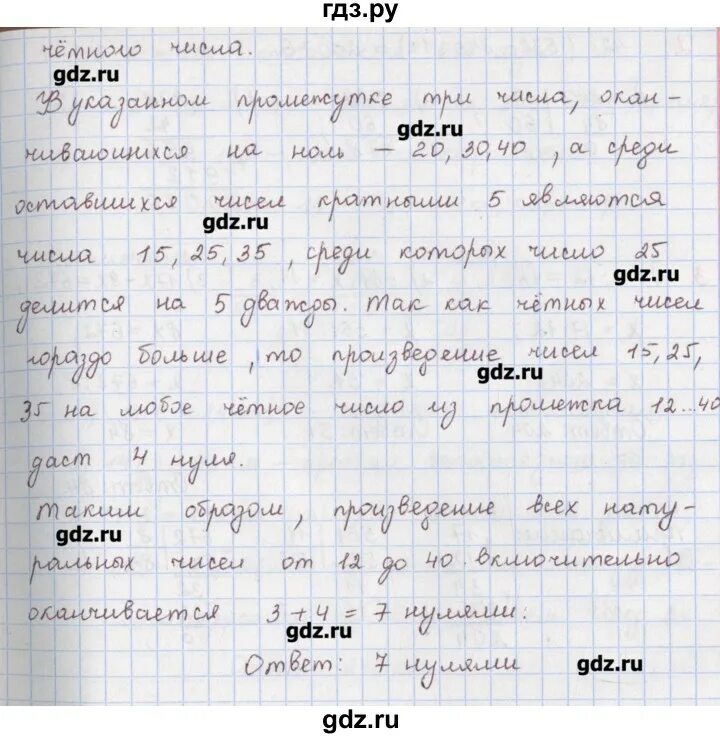 гдз.ру
чётного числа.
gdz.ru
В указанном промежутке три числа, окан-
gdz.ru
чивающихся на ноль – 20, 30, 40, а среди
оставшихся чисел кратными 5 являются
gdz.ru
числа 15, 25, 35, среди которых число 25
gdz.ru
делится на 5 дважды. Так как чётных чисел
гораздо больше, то произведение чисел 15, 25,
gdz.ru
35 на любое чётное число из промежка 12...40
даст 4 нуля.
Таким образом, произведение всех нату-
gdz.ru
ральных чисел от 12 до 40 включительно
оканчивается 3 + 4 = 7 нулями.
gdz.ru
Ответ: 7 нулями
gdz.ru
gdz.ru